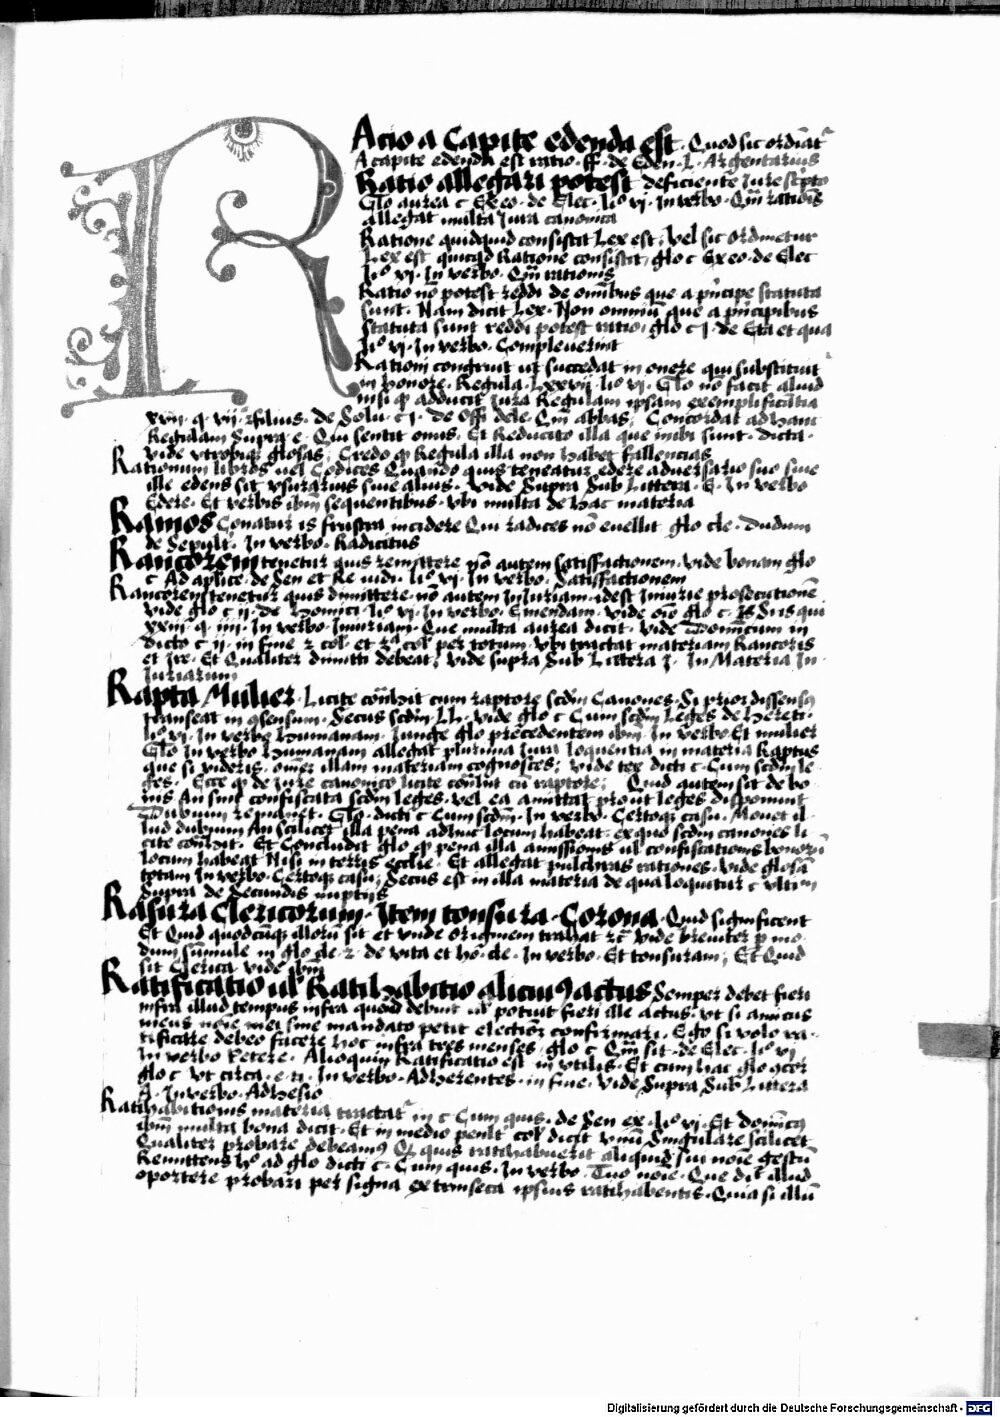 RAcio a Capite edenda est. Quod sic ordinat᷑
A capite edenda est ratio. ff. de Eden. L. Argentarius
Ratio allegari potest deficiente Jure scripto
Glo aurea c Ex eo. de Elec. li° vi. In verbo. Qm̄ rationis
allegat multa Jura canonica
Ratione quidquid consistit Lex est, Vel sic ordinetur
Lex est quicqd Ratione consistit, glo c Ex eo. de Elec
li° vi. In verbo. Qm̄ rationis
Ratio nō potest reddi de omībus que a pncipe statuta
sunt. Nam dicit Lex. Non omniū que a pncipibus
statuta sunt reddi potest ratio, glo c j. de Eta et qua
li° vi. In verbo. Compleuerint
Rationi congruit ut succedat in onere qui substituit᷑
in honore. Regula. Lxxvij. li° vi. Glo nō facit aliud
nisi qp adducit Jura Regulam ipsam exemplificātia
xvij. q. vij. filius. de Solu. c j. de Offi dele. Qm̄ abbas, Concordat ad hanc
Regulam Supra e. Qui sentit onus. Et Reducito illa que inibi sunt. dicta.
vide vtrobiqz glosas, Credo qp Regula illa non habet fallencias
Rationum libros uel Codices Quando quis teneatur edere aduersario suo siue
ille edens sit vsurarius siue alius. Vide Supra Sub Littera. E. In verbo
Edere. Et verbis ibm̄ sequentibus. vbi multa de hac materia
Ramos Conatur is frustra incidere Qui radices nō euellit glo cle. Dudum
de Sepult. In verbo. Radicitus
Rancorem tenetur quis remittere nō autem satisfactionem. Vide bonam glo
c Ad aplice. de Sen et Re iudi. li° vi. In verbo. Satisfactionem
Rancorem tenetur quis dimittere. nō autem Iniuriam. idest iniurie prosecutionē
vide glo c ij. de Homici. li° vi. In verbo. Emendam. vide oīo glo c. Is Si is qui
xxiij q. iiij. In verbo. Iniuriam. Que multa aurea dicit. Vide Dominicum in
dicto c ij. in fine 2 col. et 2ª col per totum. vbi tractat materiam Rancoris
et Ire. Et Qualiter dimitti debeat, vide supra Sub Littera I. In Materia In
Juriarum
Rapta Mulier. Licite cōthit cum raptore scdm̄ Canones. Si prior dissensꝯ
transeat in ꝯsensum. Secus scdm̄ LL. vide glo c Cum scdm̄ Leges de Hereti.
li° vi. In verbo Humanam. Iunge glo precedentem ibm̄. In verbo Et mulier
Glo In verbo Humanam allegat plurima Jura loquentia in materia Raptus
que si videris. omēz illam materiam cognosces, vide tex dicti c. Cum scdm̄ le
ges. Ecce qp de Jure canonico licite cōthit cū raptore, Quid autem sit de bo
nis An sint confiscata scdm̄ leges. vel ea amittat prout leges disponunt
Dubium remanet. Glo. dicti c Cum scdm̄. In verbo. Certoqz casu. Mouet il
lud dubium An scilicet illa pena adhuc locum habeat. ex quo scdm̄ canones li
cite cōthit. Et Concludit glo qp pena illa amissionis ul confiscationis bonorū
locum habeat Nisi in terris ecclie. Et allegat pulchras rationes. Vide glosā
totam In verbo. Certoqz casu, Secus est in illa materia de qua loquitur c vltim
Supra de Secundis nuptijs
Rasura Clericorum. Item tonsura. Corona. Quid significent
Et Quid quodcūqz illorū sit et vnde originem trahat zc̄ vide breuiter p mo
dum sūmule in glo cle. 2. de vita et ho. cle. In verbo. Et tonsuram, Et Quid
sit Clerica vide ibm̄
Ratificatio ul Ratihabitio alicuiꝯ actus Semper debet fieri
infra illud tempus infra quod debuit ul potuit fieri ille actus. vt si amicus
meus noīe mei sine mandato petit electioēz confirmari. Ego si volo ra.
tificare debeo facere hoc infra tres menses, glo c Qm̄ sit. de Elec. li° vi
In verbo Petere. Alioquin Ratificatio est inutilis. Et cum hac glo ꝯcor
glo c Vt circa. e. ti. In verbo. Adherentes. in fine. Vide Supra Sub Littera
A. In verbo. Adhesio
Ratihabitionis materia tractat᷑ in c Cum quis. de Sen ex. li° vi. Et domīcꝯ
ibm̄ multa bona dicit. Et in medio penlt col dicit vnū Singulare scilicet
Qualiter probare debeamꝯ Qp quis ratihabuerit aliquid sui noīe gestū
Remittens hº ad glo dicti c. Cum quis. In verbo. Tuo noīe. Que dīc illud
oportere probari per signa extrinseca ipsius ratihabentis. Quia si illū
Digitalisierung gefördert durch die Deutsche Forschungsgemeinschaft - DFG